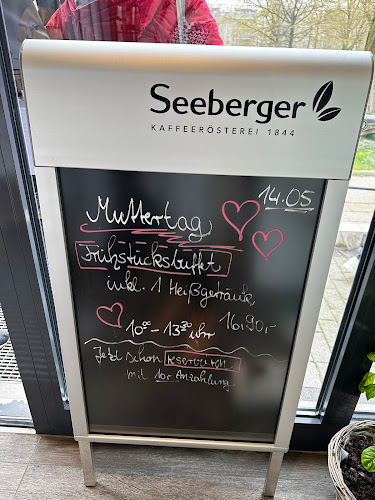 Seeberger
KAFFEERÖSTEREI 1844
14.05
Muttertag
Frühstücksbuffet
inkl. 1 Heißgetränk
16.90,-
10⁰⁰ - 13³⁰ uhr
Jetzt schon
mit 10er Anzahlung